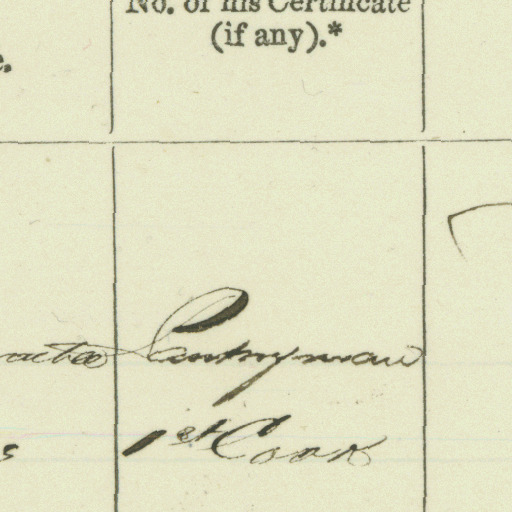 No. of his Certificate
(if any).*
Pantryman
1st Cook